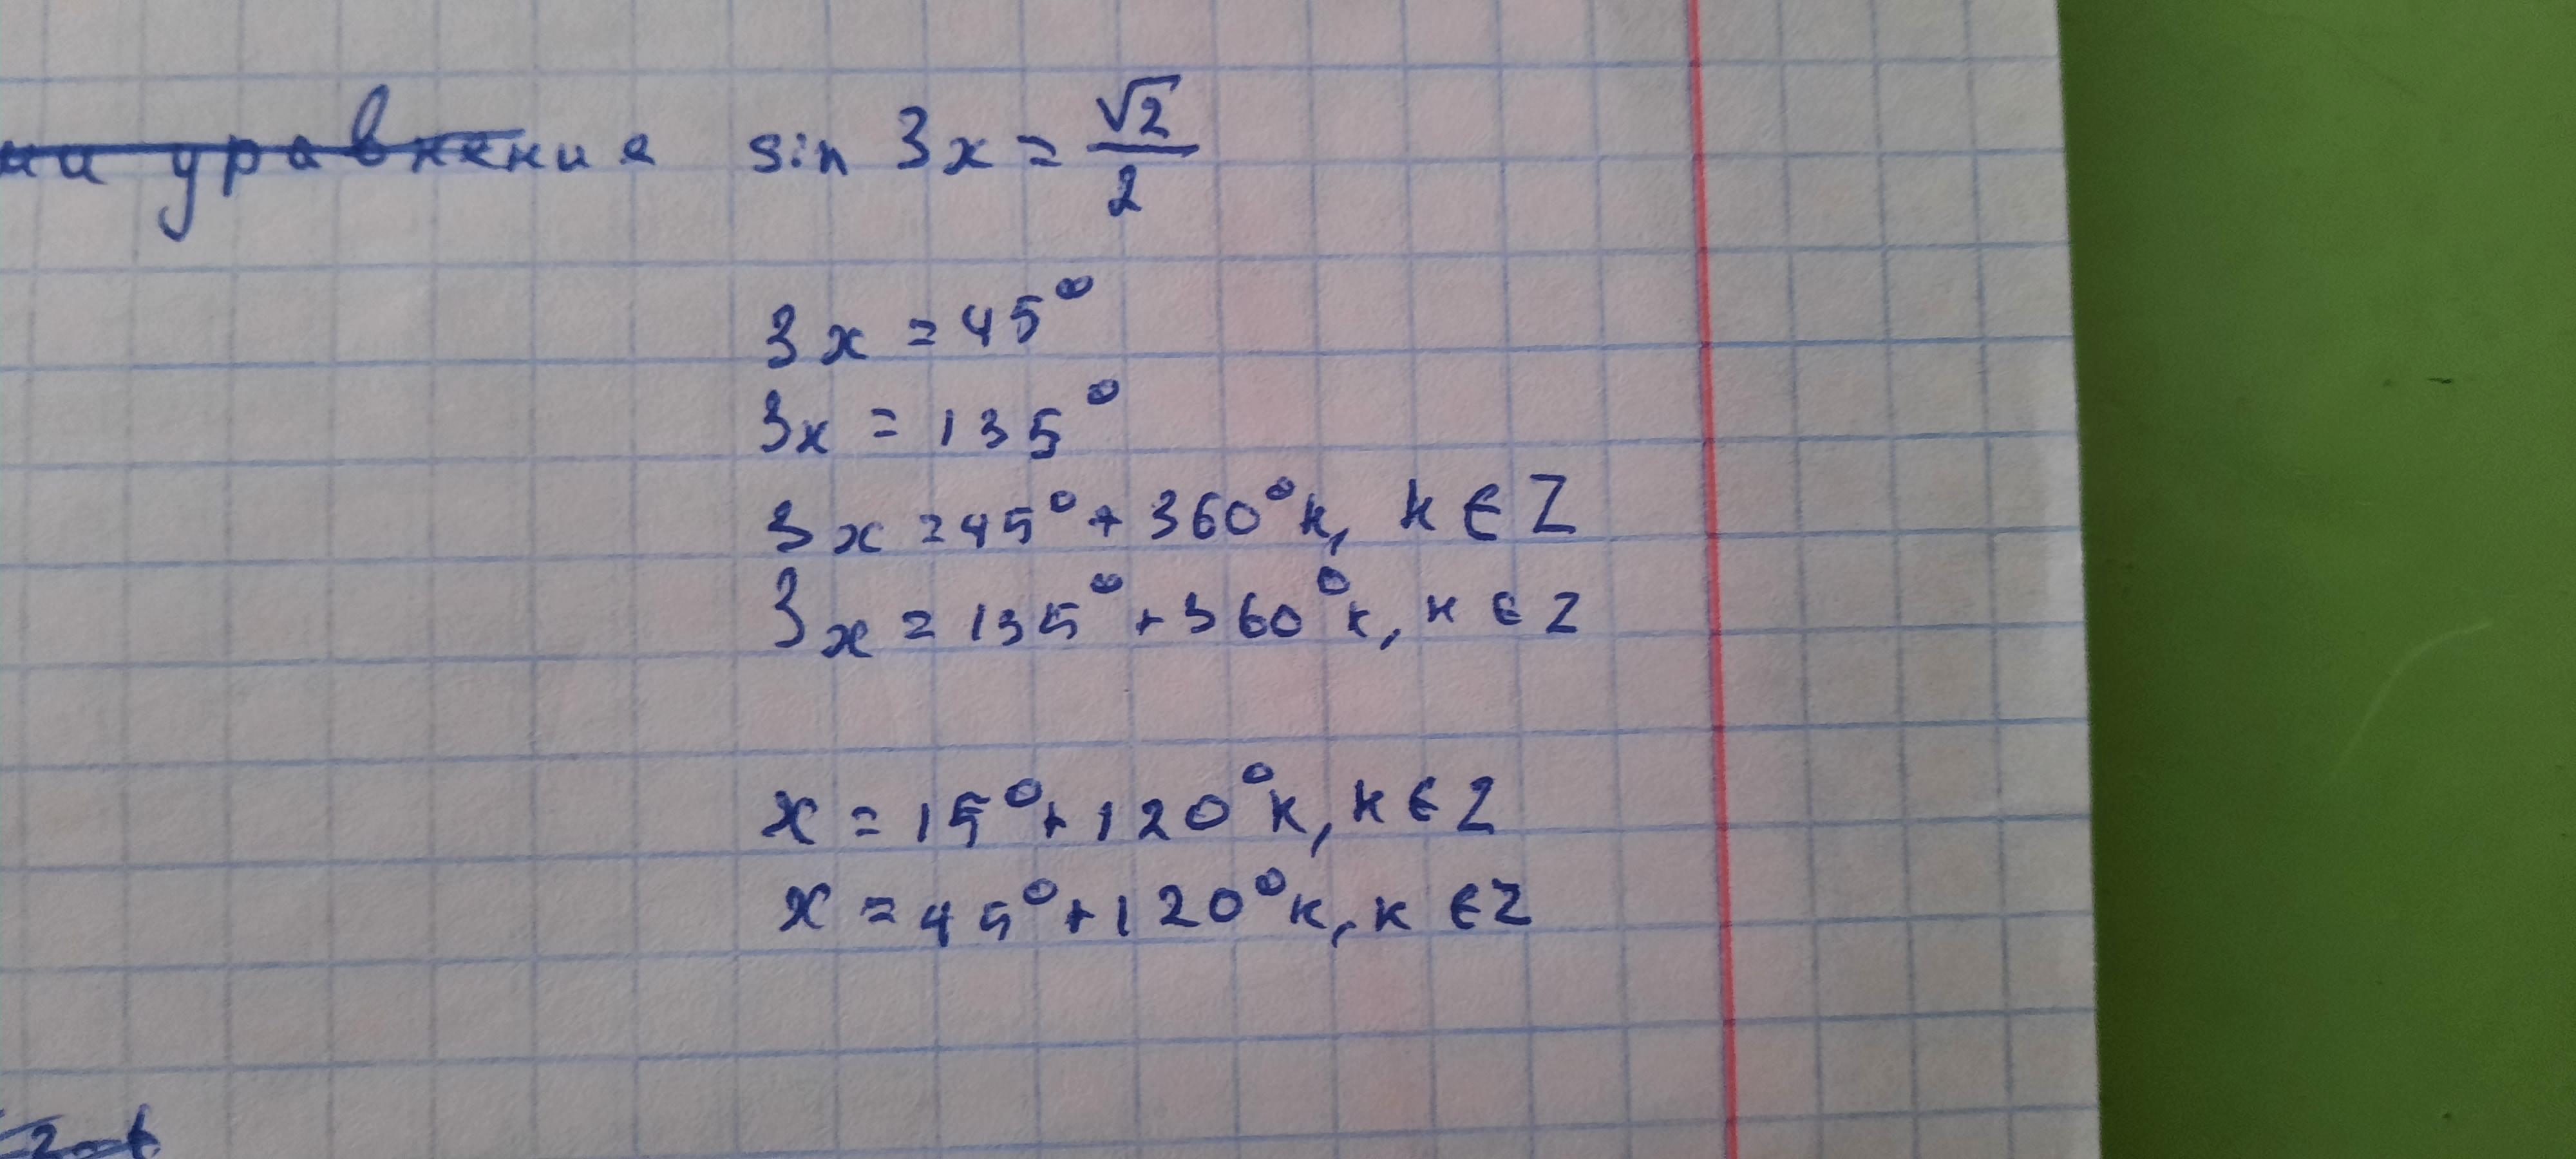 ни уравнение sin 3x = √2/2
3x = 45°
3x = 135°
3x = 45° + 360°k, k ∈ Z
3x = 135° + 360°k, k ∈ Z
x = 15° + 120°k, k ∈ Z
x = 45° + 120°k, k ∈ Z